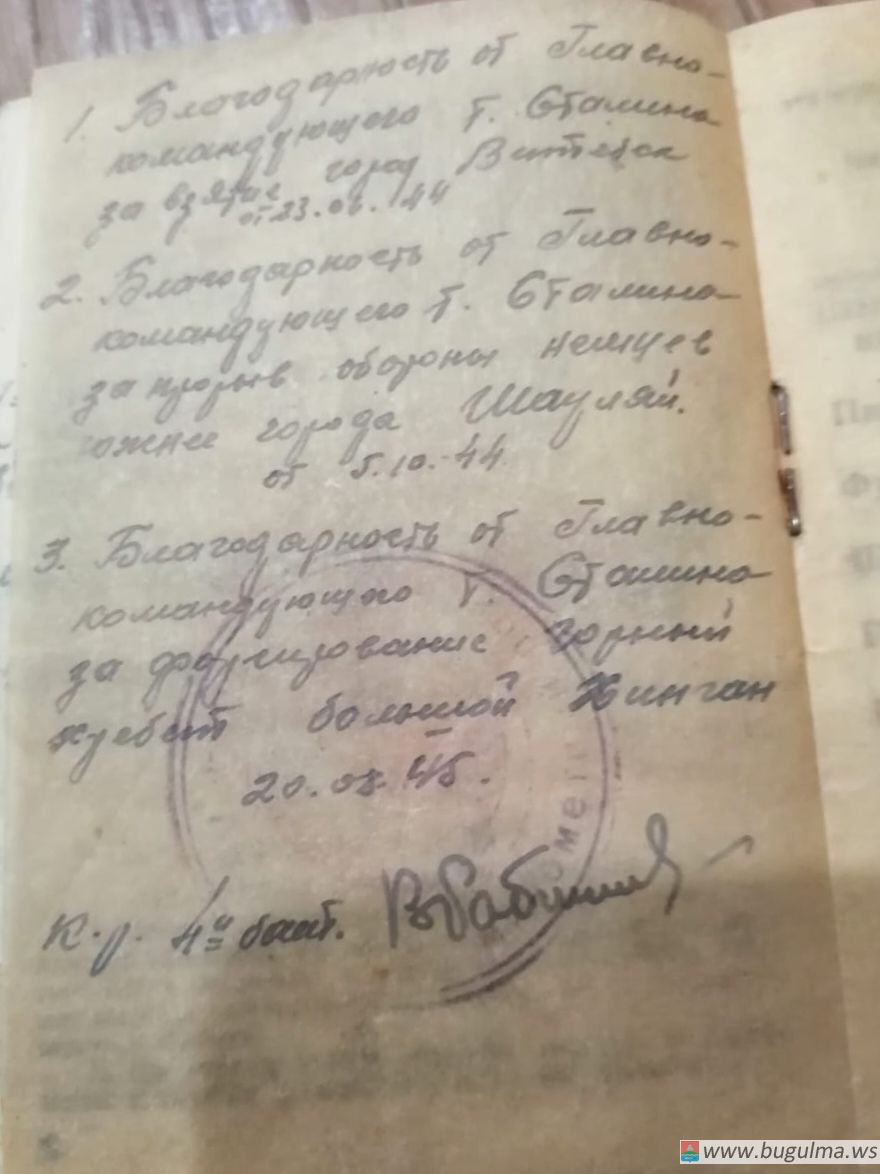 1. Благодарность от Главно-
командующего т. Сталина
за взятие город Витебск
от 23.06.44
2. Благодарность от Главно-
командующего т. Сталина
за прорыв обороны немцев
южнее города Шауляй.
от 5.10.44
3. Благодарность от Главно-
командующего т. Сталина
за форсирование горный
хребет большой Хинган
20.08.45.
к.р. 4й бат.
www.bugulma.ws